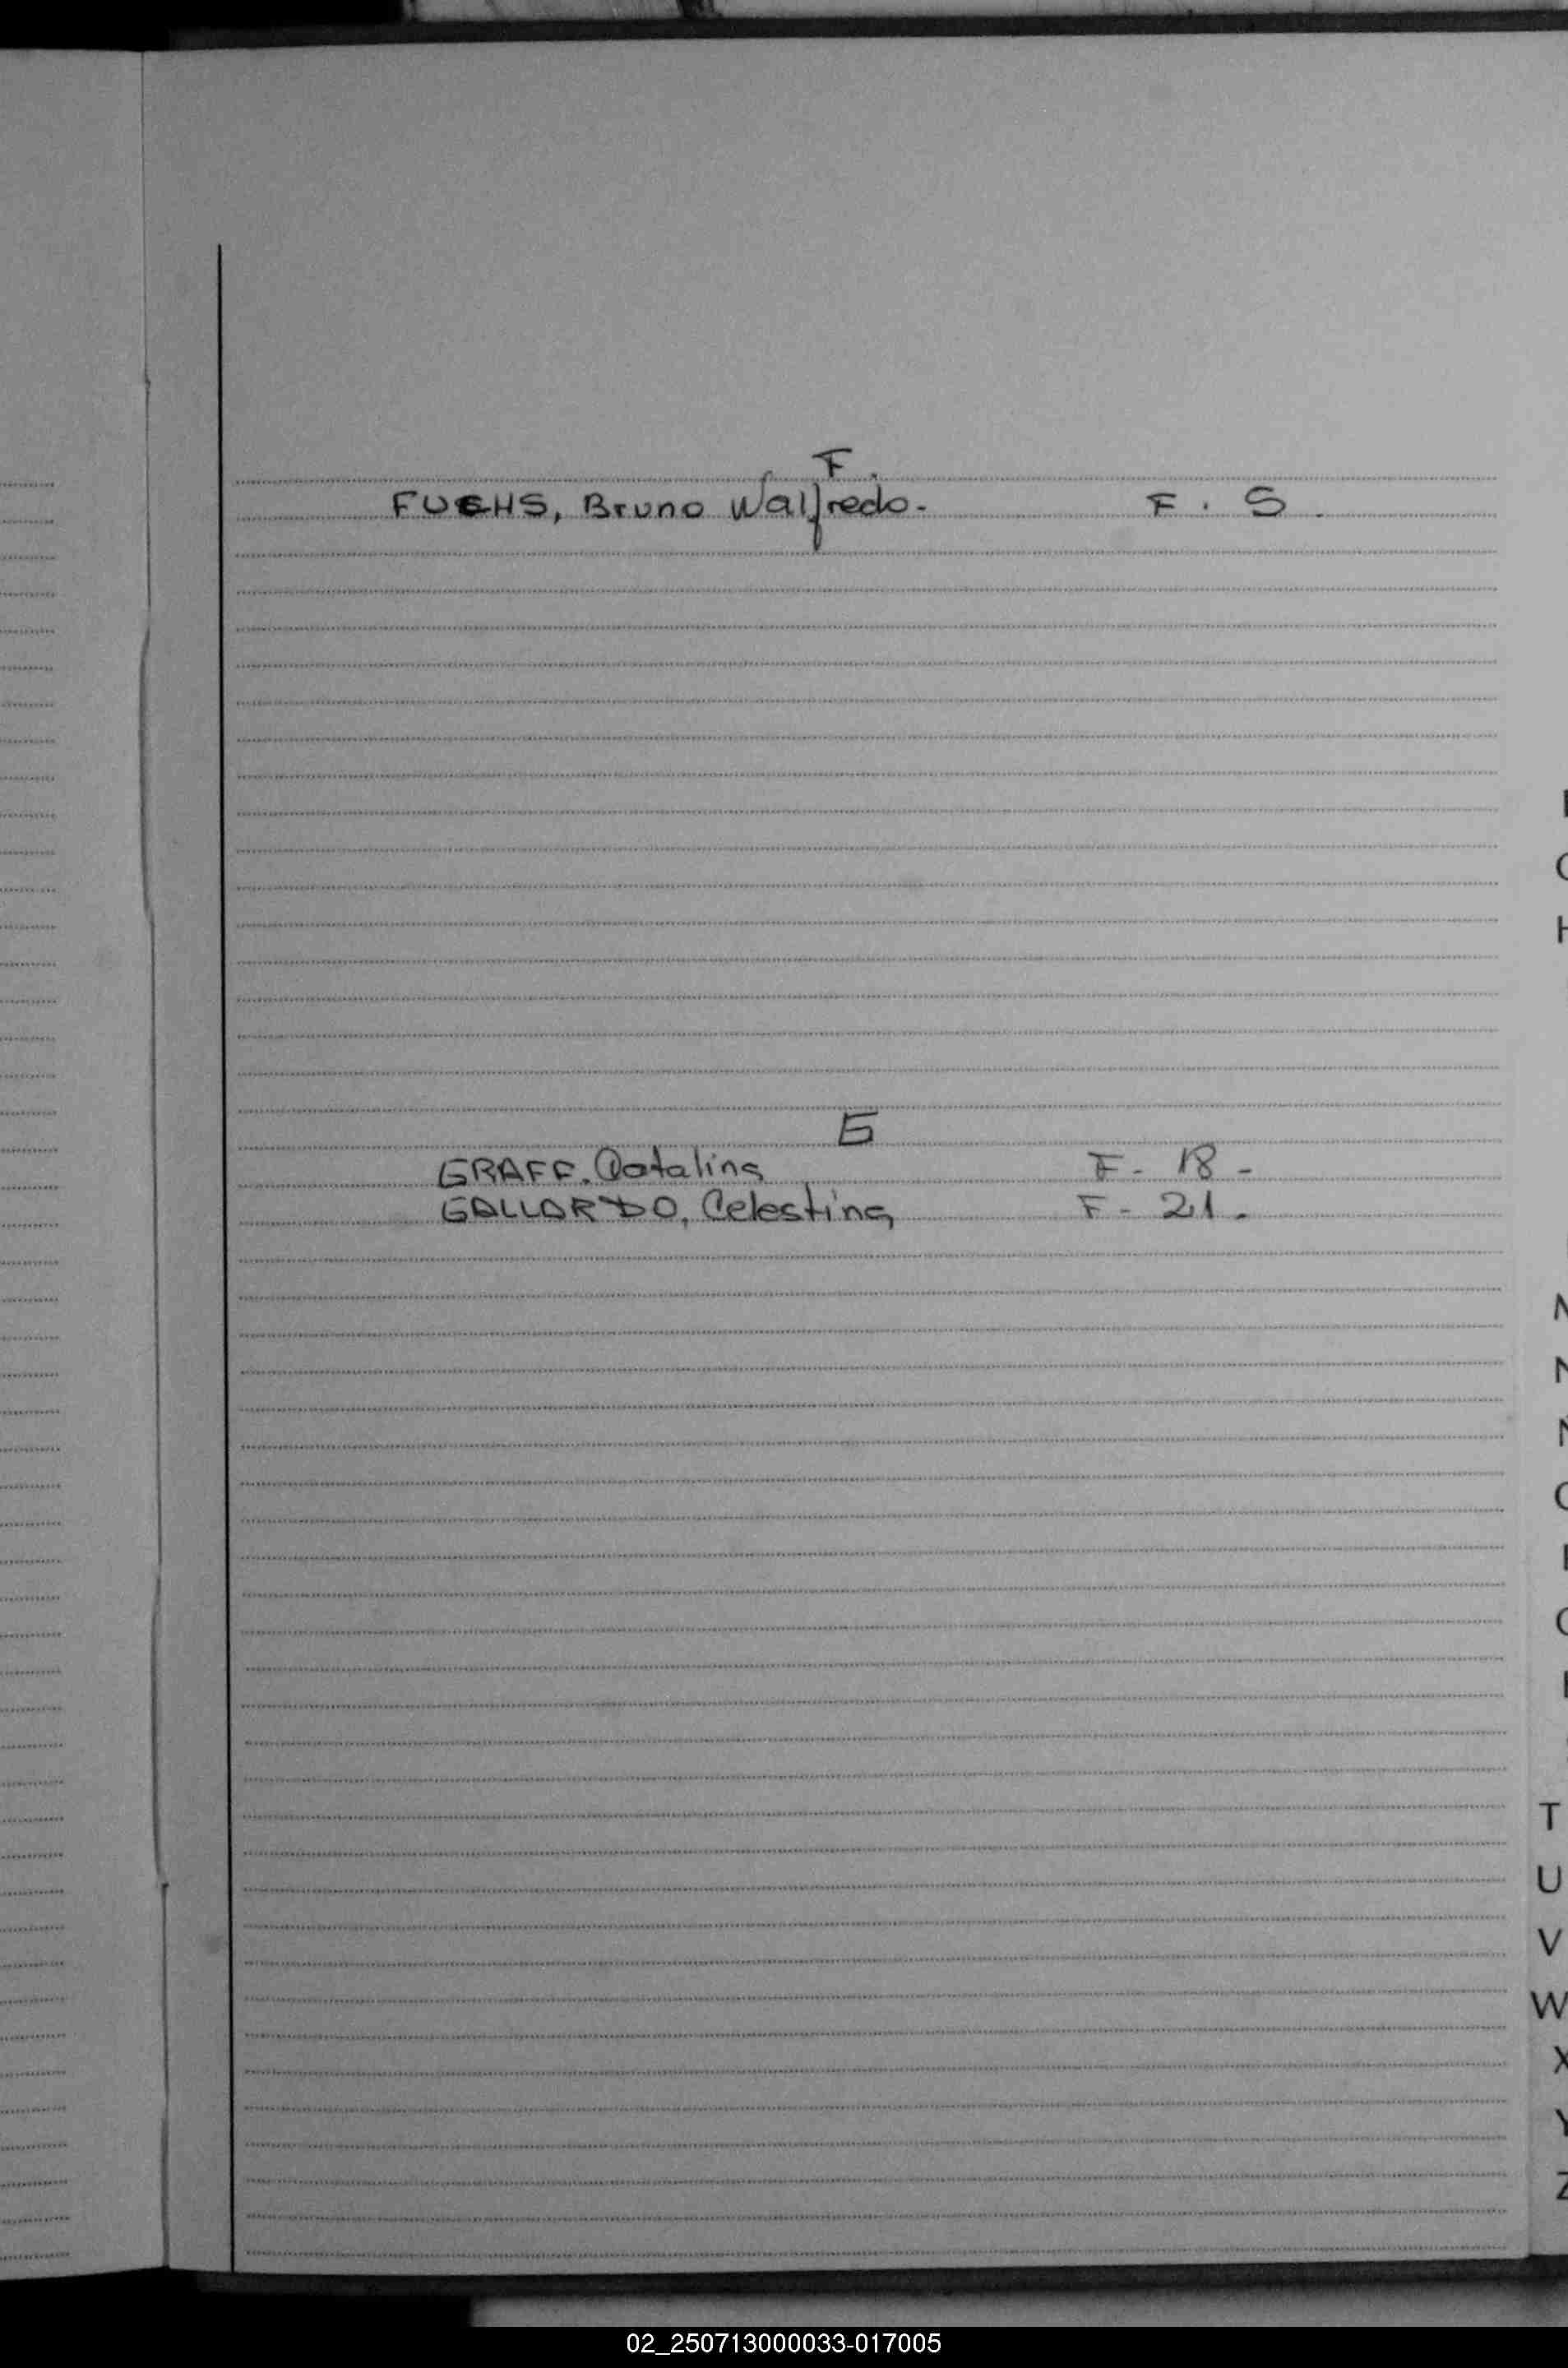 F.
FUCHS, Bruno Walfredo. F. 5.
G
GRAFF. Catalina F- 18-
GALLARDO, Celestina F- 21.
H
N
T
U
V
W
X
Y
Z
02_250713000033-017005